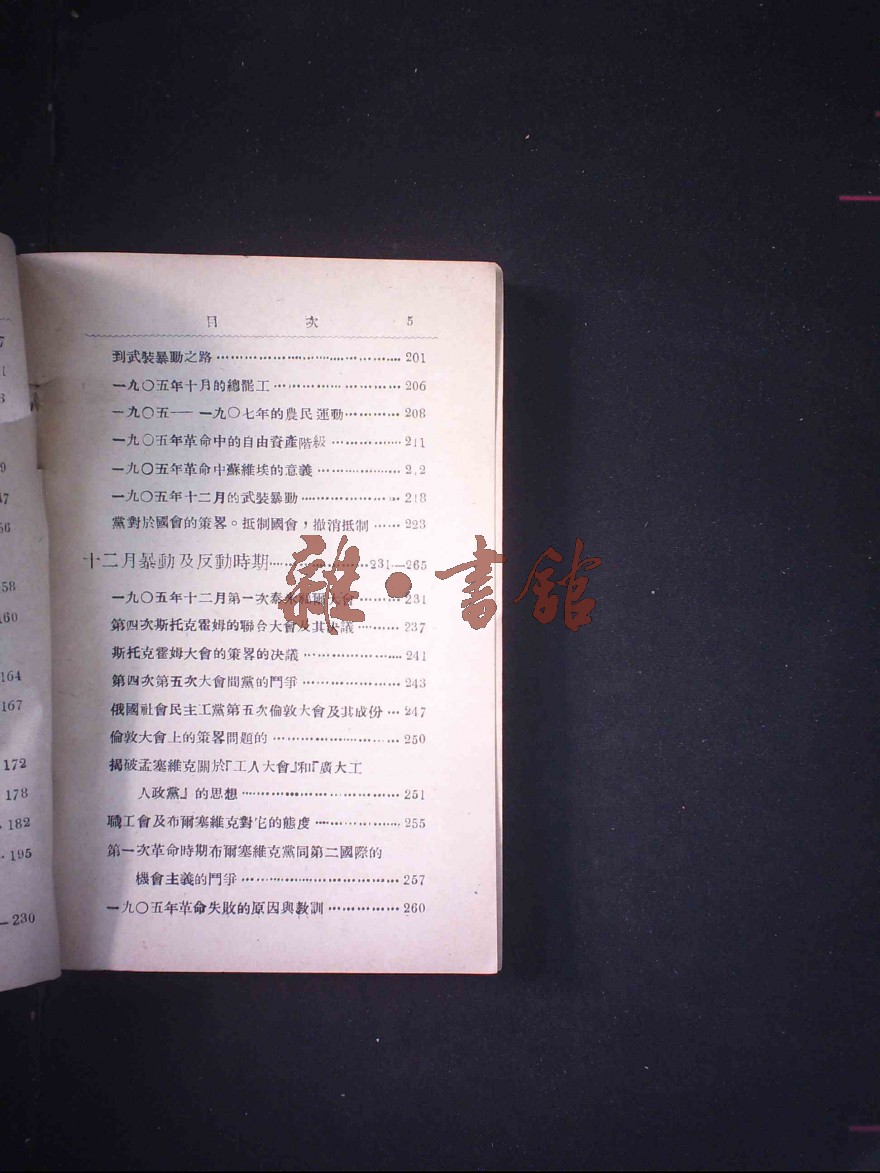 目 次 5
到武裝暴動之路 201
一九〇五年十月的總罷工 206
一九〇五—一九〇七年的農民運動 208
一九〇五年革命中的自由資產階級 211
一九〇五年革命中蘇維埃的意義 2 2
一九〇五年十二月的武裝暴動 218
黨對於國會的策畧。抵制國會，撤消抵制 223
十二月暴動及反動時期 231—265
一九〇五年十二月第一次 大會 231
第四次斯托克霍姆的聯合大會及其決議 237
斯托克霍姆大會的策畧的決議 241
第四次第五次大會間黨的鬥爭 243
俄國社會民主工黨第五次倫敦大會及其成份 247
倫敦大會上的策畧問題的 250
揭破孟塞維克關於『工人大會』和『廣大工
人政黨』的思想 251
職工會及布爾塞維克對它的態度 255
第一次革命時期布爾塞維克黨同第二國際的
機會主義的鬥爭 257
一九〇五年革命失敗的原因與教訓 260
雜·書館
47
56
58
160
164
167
172
178
182
195
—230